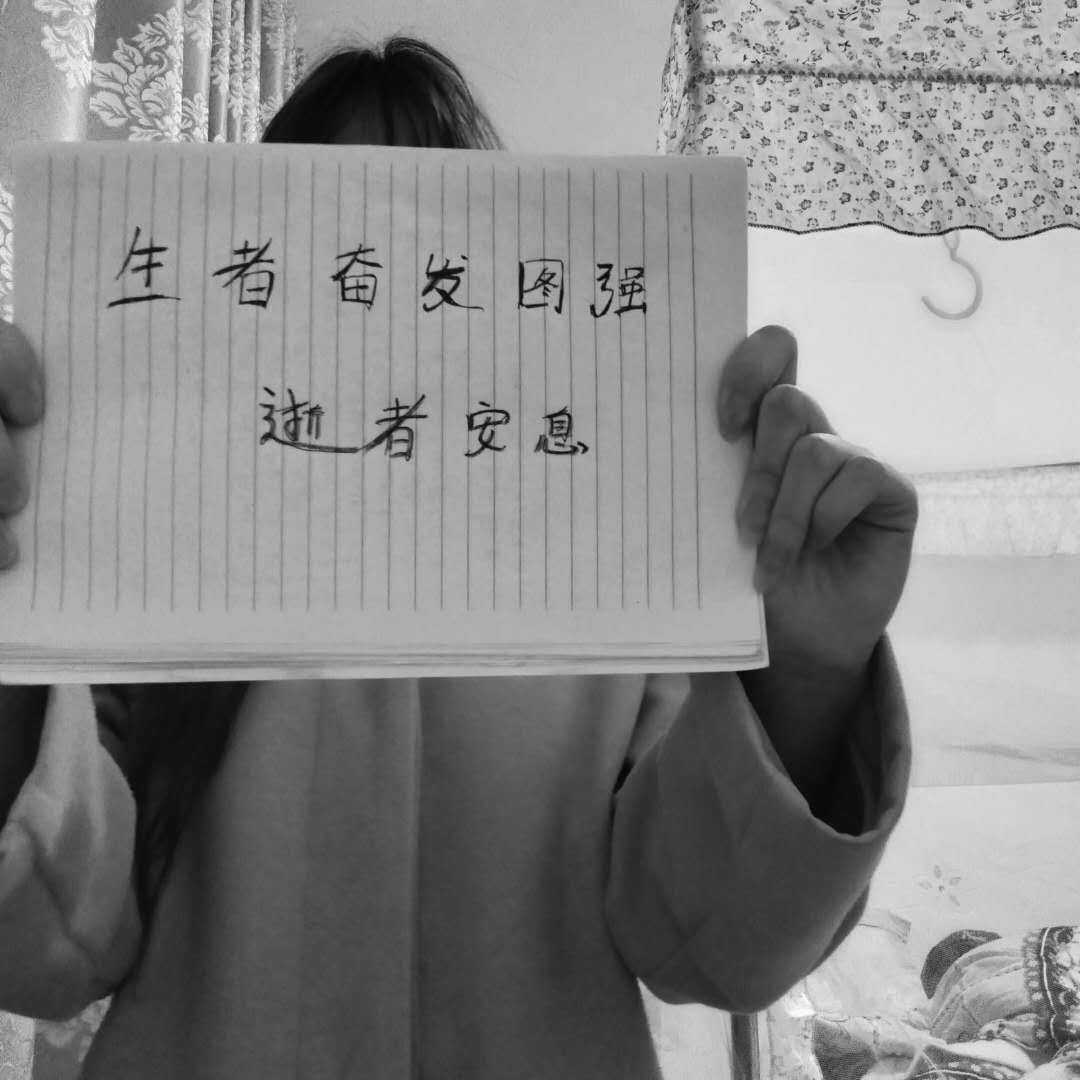 生者奋发图强
逝者安息